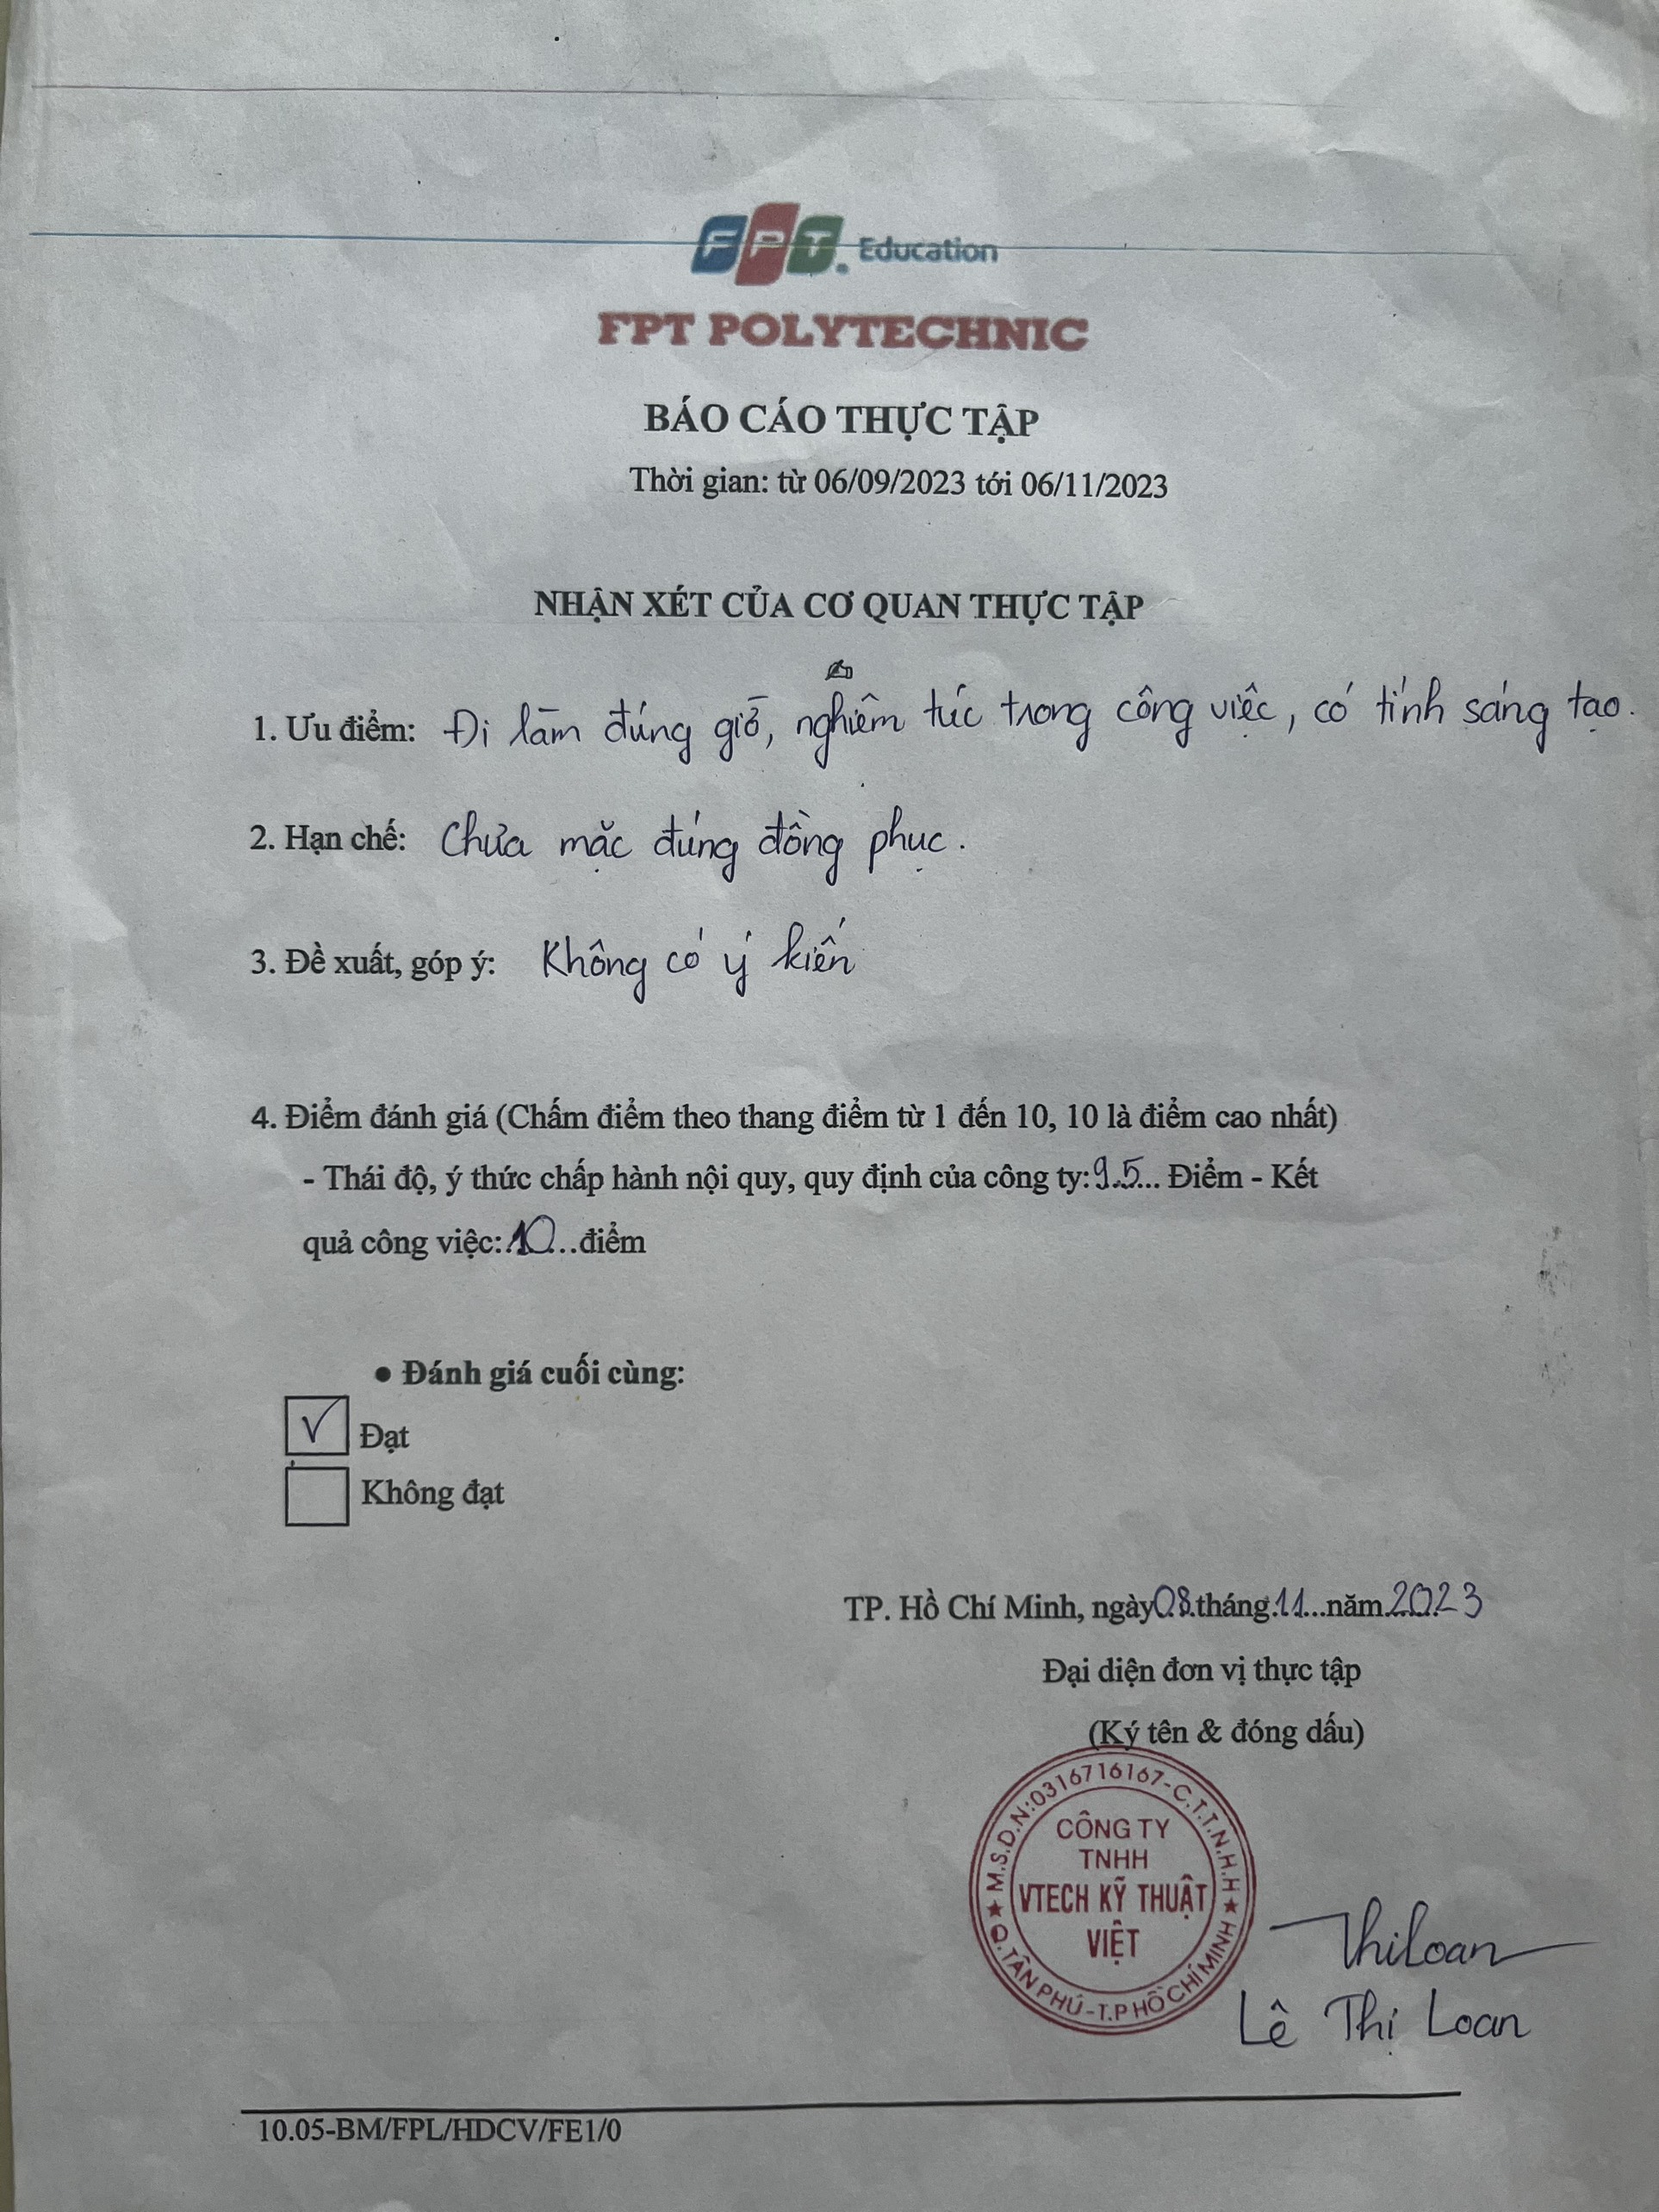 FPT. Education
FPT POLYTECHNIC
BÁO CÁO THỰC TẬP
Thời gian: từ 06/09/2023 tới 06/11/2023
NHẬN XÉT CỦA CƠ QUAN THỰC TẬP
1. Ưu điểm: Đi làm đúng giờ, nghiêm túc trong công việc, có tính sáng tạo.
2. Hạn chế: Chưa mặc đúng đồng phục.
3. Đề xuất, góp ý: Không có ý kiến
4. Điểm đánh giá (Chấm điểm theo thang điểm từ 1 đến 10, 10 là điểm cao nhất)
- Thái độ, ý thức chấp hành nội quy, quy định của công ty:9.5... Điểm - Kết
quả công việc:.10...điểm
● Đánh giá cuối cùng:
Đạt
Không đạt
TP. Hồ Chí Minh, ngày08.tháng.11...năm.2023
Đại diện đơn vị thực tập
(Ký tên & đóng dấu)
M.S.D.N:0316716167-C.T.T.N.H.H
CÔNG TY
TNHH
VTECH KỸ THUẬT
VIỆT
Q.TÂN PHÚ-T.P HỒ CHÍ MINH
ThiLoan
Lê Thị Loan
10.05-BM/FPL/HDCV/FE1/0